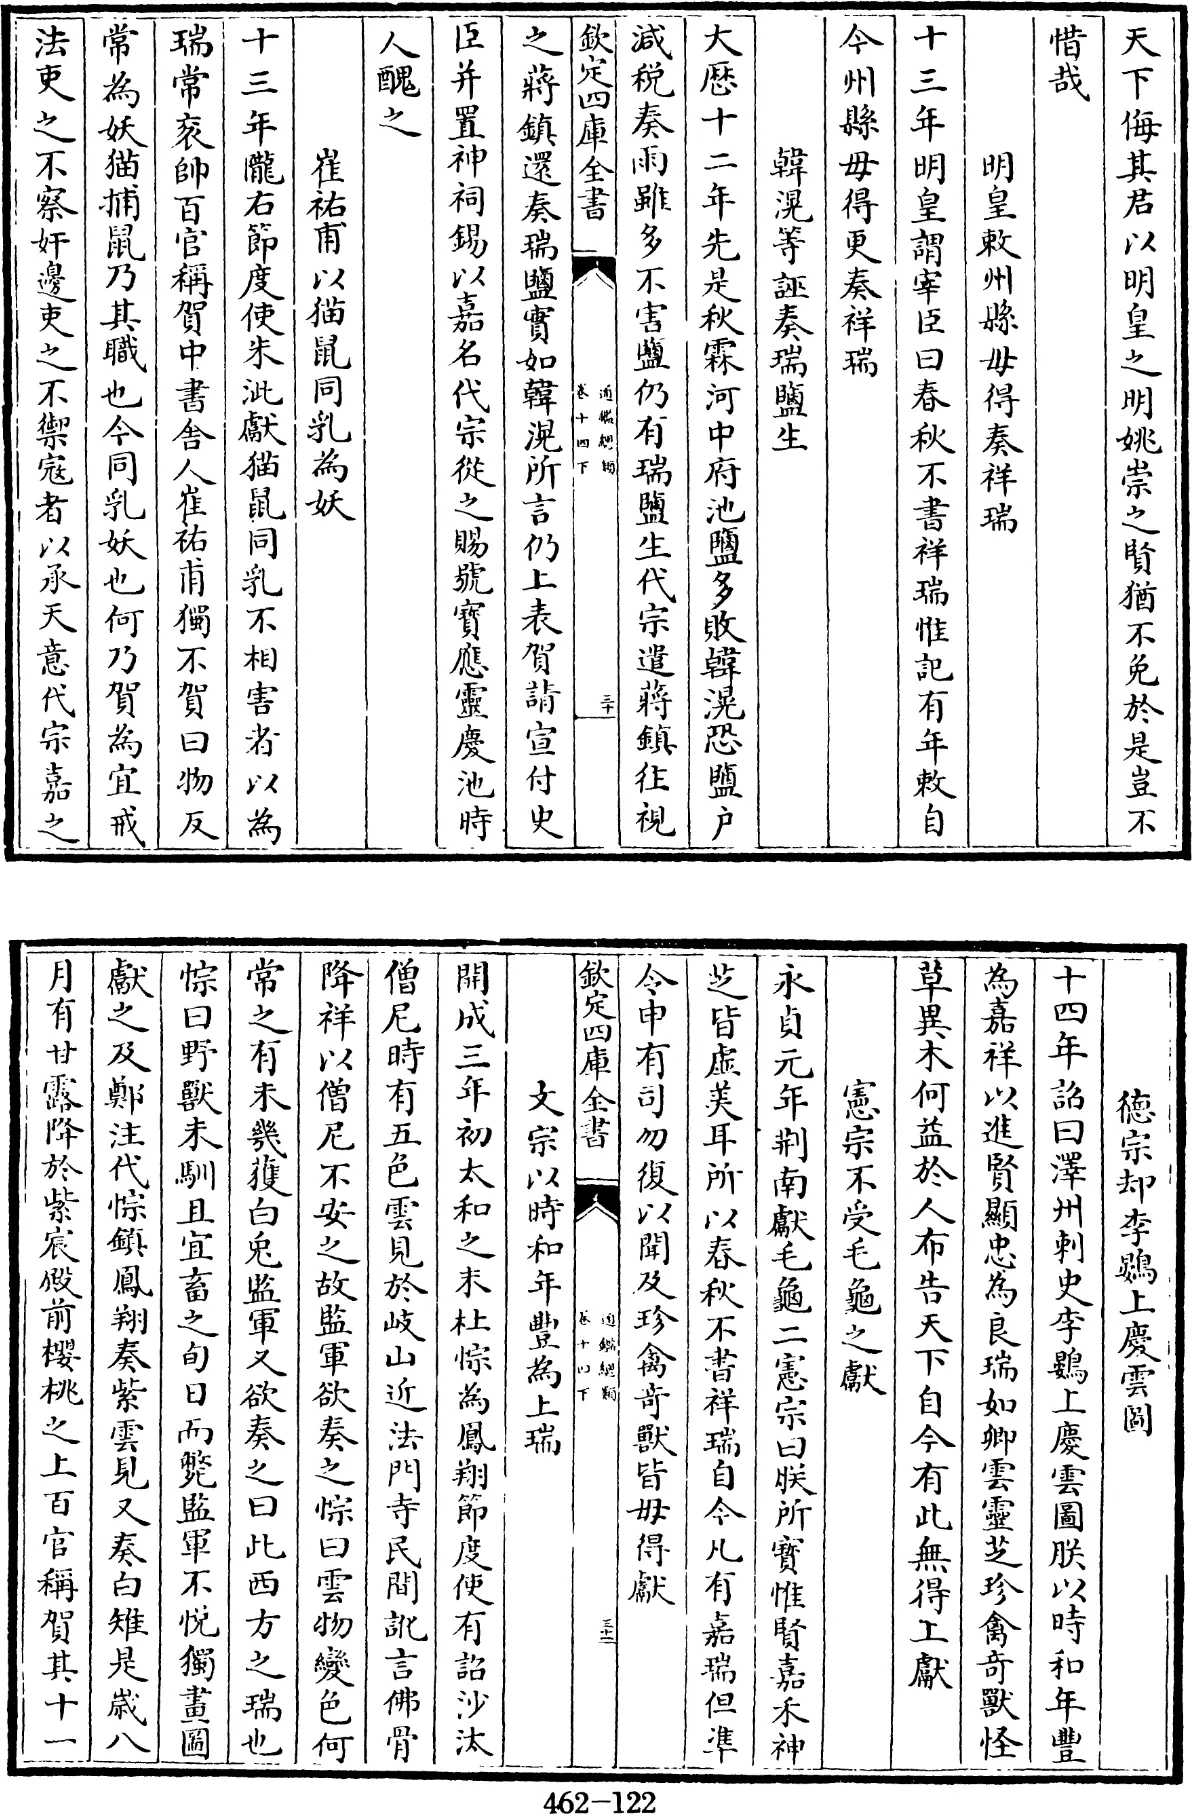 天下侮其君以明皇之明姚崇之賢猶不免於是豈不
惜哉
明皇敕州縣毋得奏祥瑞
十三年明皇謂宰臣曰春秋不書祥瑞惟記有年敕自
今州縣毋得更奏祥瑞
韓滉等誣奏瑞鹽生
大厯十二年先是秋霖河中府池鹽多敗韓滉恐鹽户
減税奏雨雖多不害鹽仍有瑞鹽生代宗遣蔣鎮往視
欽定四庫全書
通鑑總類
卷十四下
三十
之蔣鎮還奏瑞鹽實如韓滉所言仍上表賀請宣付史
臣并置神祠錫以嘉名代宗從之賜號寳應靈慶池時
人醜之
崔祐甫以猫鼠同乳為妖
十三年隴右節度使朱泚獻猫鼠同乳不相害者以為
瑞常衮帥百官稱賀中書舍人崔祐甫獨不賀曰物反
常為妖猫捕鼠乃其職也今同乳妖也何乃賀為宜戒
法吏之不察奸邊吏之不禦寇者以承天意代宗嘉之
德宗却李鷃上慶雲圖
十四年詔曰澤州刺史李鷃上慶雲圖朕以時和年豐
為嘉祥以進賢顯忠為良瑞如卿雲靈芝珍禽奇獸怪
草異木何益於人布告天下自今有此無得上獻
憲宗不受毛龜之獻
永貞元年荆南獻毛龜二憲宗曰朕所寳惟賢嘉禾神
芝皆虚美耳所以春秋不書祥瑞自今凡有嘉瑞但準
令申有司勿復以聞及珍禽奇獸皆毋得獻
欽定四庫全書
通鑑總類
卷十四下
三十一
文宗以時和年豐為上瑞
開成三年初太和之末杜悰為鳳翔節度使有詔沙汰
僧尼時有五色雲見於岐山近法門寺民間訛言佛骨
降祥以僧尼不安之故監軍欲奏之悰曰雲物變色何
常之有未幾獲白兎監軍又欲奏之曰此西方之瑞也
悰曰野獸未馴且宜畜之旬日而斃監軍不悅獨畫圖
獻之及鄭注代悰鎮鳳翔奏紫雲見又奏白雉是歲八
月有甘露降於紫宸殿前櫻桃之上百官稱賀其十一
462-122